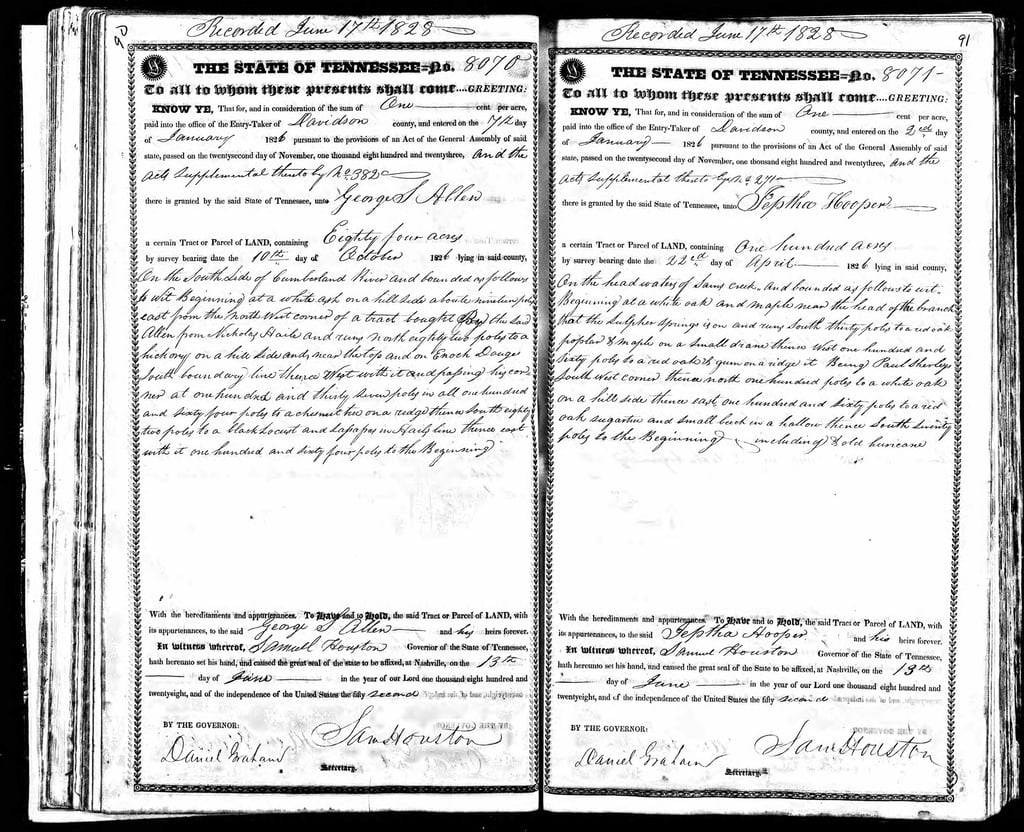 90
Recorded June 17th 1828
THE STATE OF TENNESSEE=No. 8070
To all to whom these presents shall come....GREETING:
KNOW YE, That for, and in consideration of the sum of One cent per acre,
paid into the office of the Entry-Taker of Davidson county, and entered on the 17th day
of January 1826 pursuant to the provisions of an Act of the General Assembly of said
state, passed on the twentysecond day of November, one thousand eight hundred and twentythree, and the
acts supplemental thereto by No 382
there is granted by the said State of Tennessee, unto George S Allen
a certain Tract or Parcel of LAND, containing Eighty four acres
by survey bearing date the 10th day of October 1826 lying in said county,
On the South Side of Cumberland River and bounded as follows
to wit Beginning at a white ash on a hill side a boute nineteen poles
east from the North West corner of a tract bought By the said
Allen from Nicholas Haile and runs north eighty two poles to a
hickory on a hill side and near the top and on Enoch Douge
South boundary line thence West with it and passing his cor
ner at one hundred and thirty seven poles in all one hundred
and sixty four poles to a chesnut tree on a ridge thence South eighty
two poles to a black Locust and Sasafras in Hails line thence east
with it one hundred and sixty four poles to the Beginning
With the hereditaments and appurtenances. To Have and to Hold, the said Tract or Parcel of LAND, with
its appurtenances, to the said George S Allen and his heirs forever.
In witness whereof, Samuel Houston Governor of the State of Tennessee,
hath hereunto set his hand, and caused the great seal of the state to be affixed, at Nashville, on the 13th
day of June in the year of our Lord one thousand eight hundred and
twentyeight, and of the independence of the United States the fifty second
BY THE GOVERNOR:
Sam Houston
Daniel Graham
Secretary.
91
Recorded June 17th 1828
THE STATE OF TENNESSEE=No. 8071
To all to whom these presents shall come....GREETING:
KNOW YE, That for, and in consideration of the sum of One cent per acre,
paid into the office of the Entry-Taker of Davidson county, and entered on the 2nd day
of January 1826 pursuant to the provisions of an Act of the General Assembly of said
state, passed on the twentysecond day of November, one thousand eight hundred and twentythree, and the
acts supplemental thereto by No 271
there is granted by the said State of Tennessee, unto Jeptha Hooper
a certain Tract or Parcel of LAND, containing One hundred acres
by survey bearing date the 22nd day of April 1826 lying in said county,
On the head waters of Sams Creek. And bounded as follows to wit.
Beginning at a white oak and maple near the head of the branch
that the Sulpher Springs is on and runs South thirty poles to a red oak
poplar & maple on a small drane thence West one hundred and
sixty poles to a red oak & gum on a ridge it Being Paul Shirleys
South West corner thence north one hundred poles to a white oak
on a hill side thence east one hundred and sixty poles to a red
oak sugartree and small beech in a hallow thence South Seventy
poles to the Beginning including & old huricane
With the hereditaments and appurtenances. To Have and to Hold, the said Tract or Parcel of LAND, with
its appurtenances, to the said Jeptha Hooper and his heirs forever.
In witness whereof, Samuel Houston Governor of the State of Tennessee,
hath hereunto set his hand, and caused the great seal of the State to be affixed, at Nashville, on the 13th
day of June in the year of our Lord one thousand eight hundred and
twentyeight, and of the independence of the United States the fifty second
BY THE GOVERNOR:
Sam Houston
Daniel Graham
Secretary.